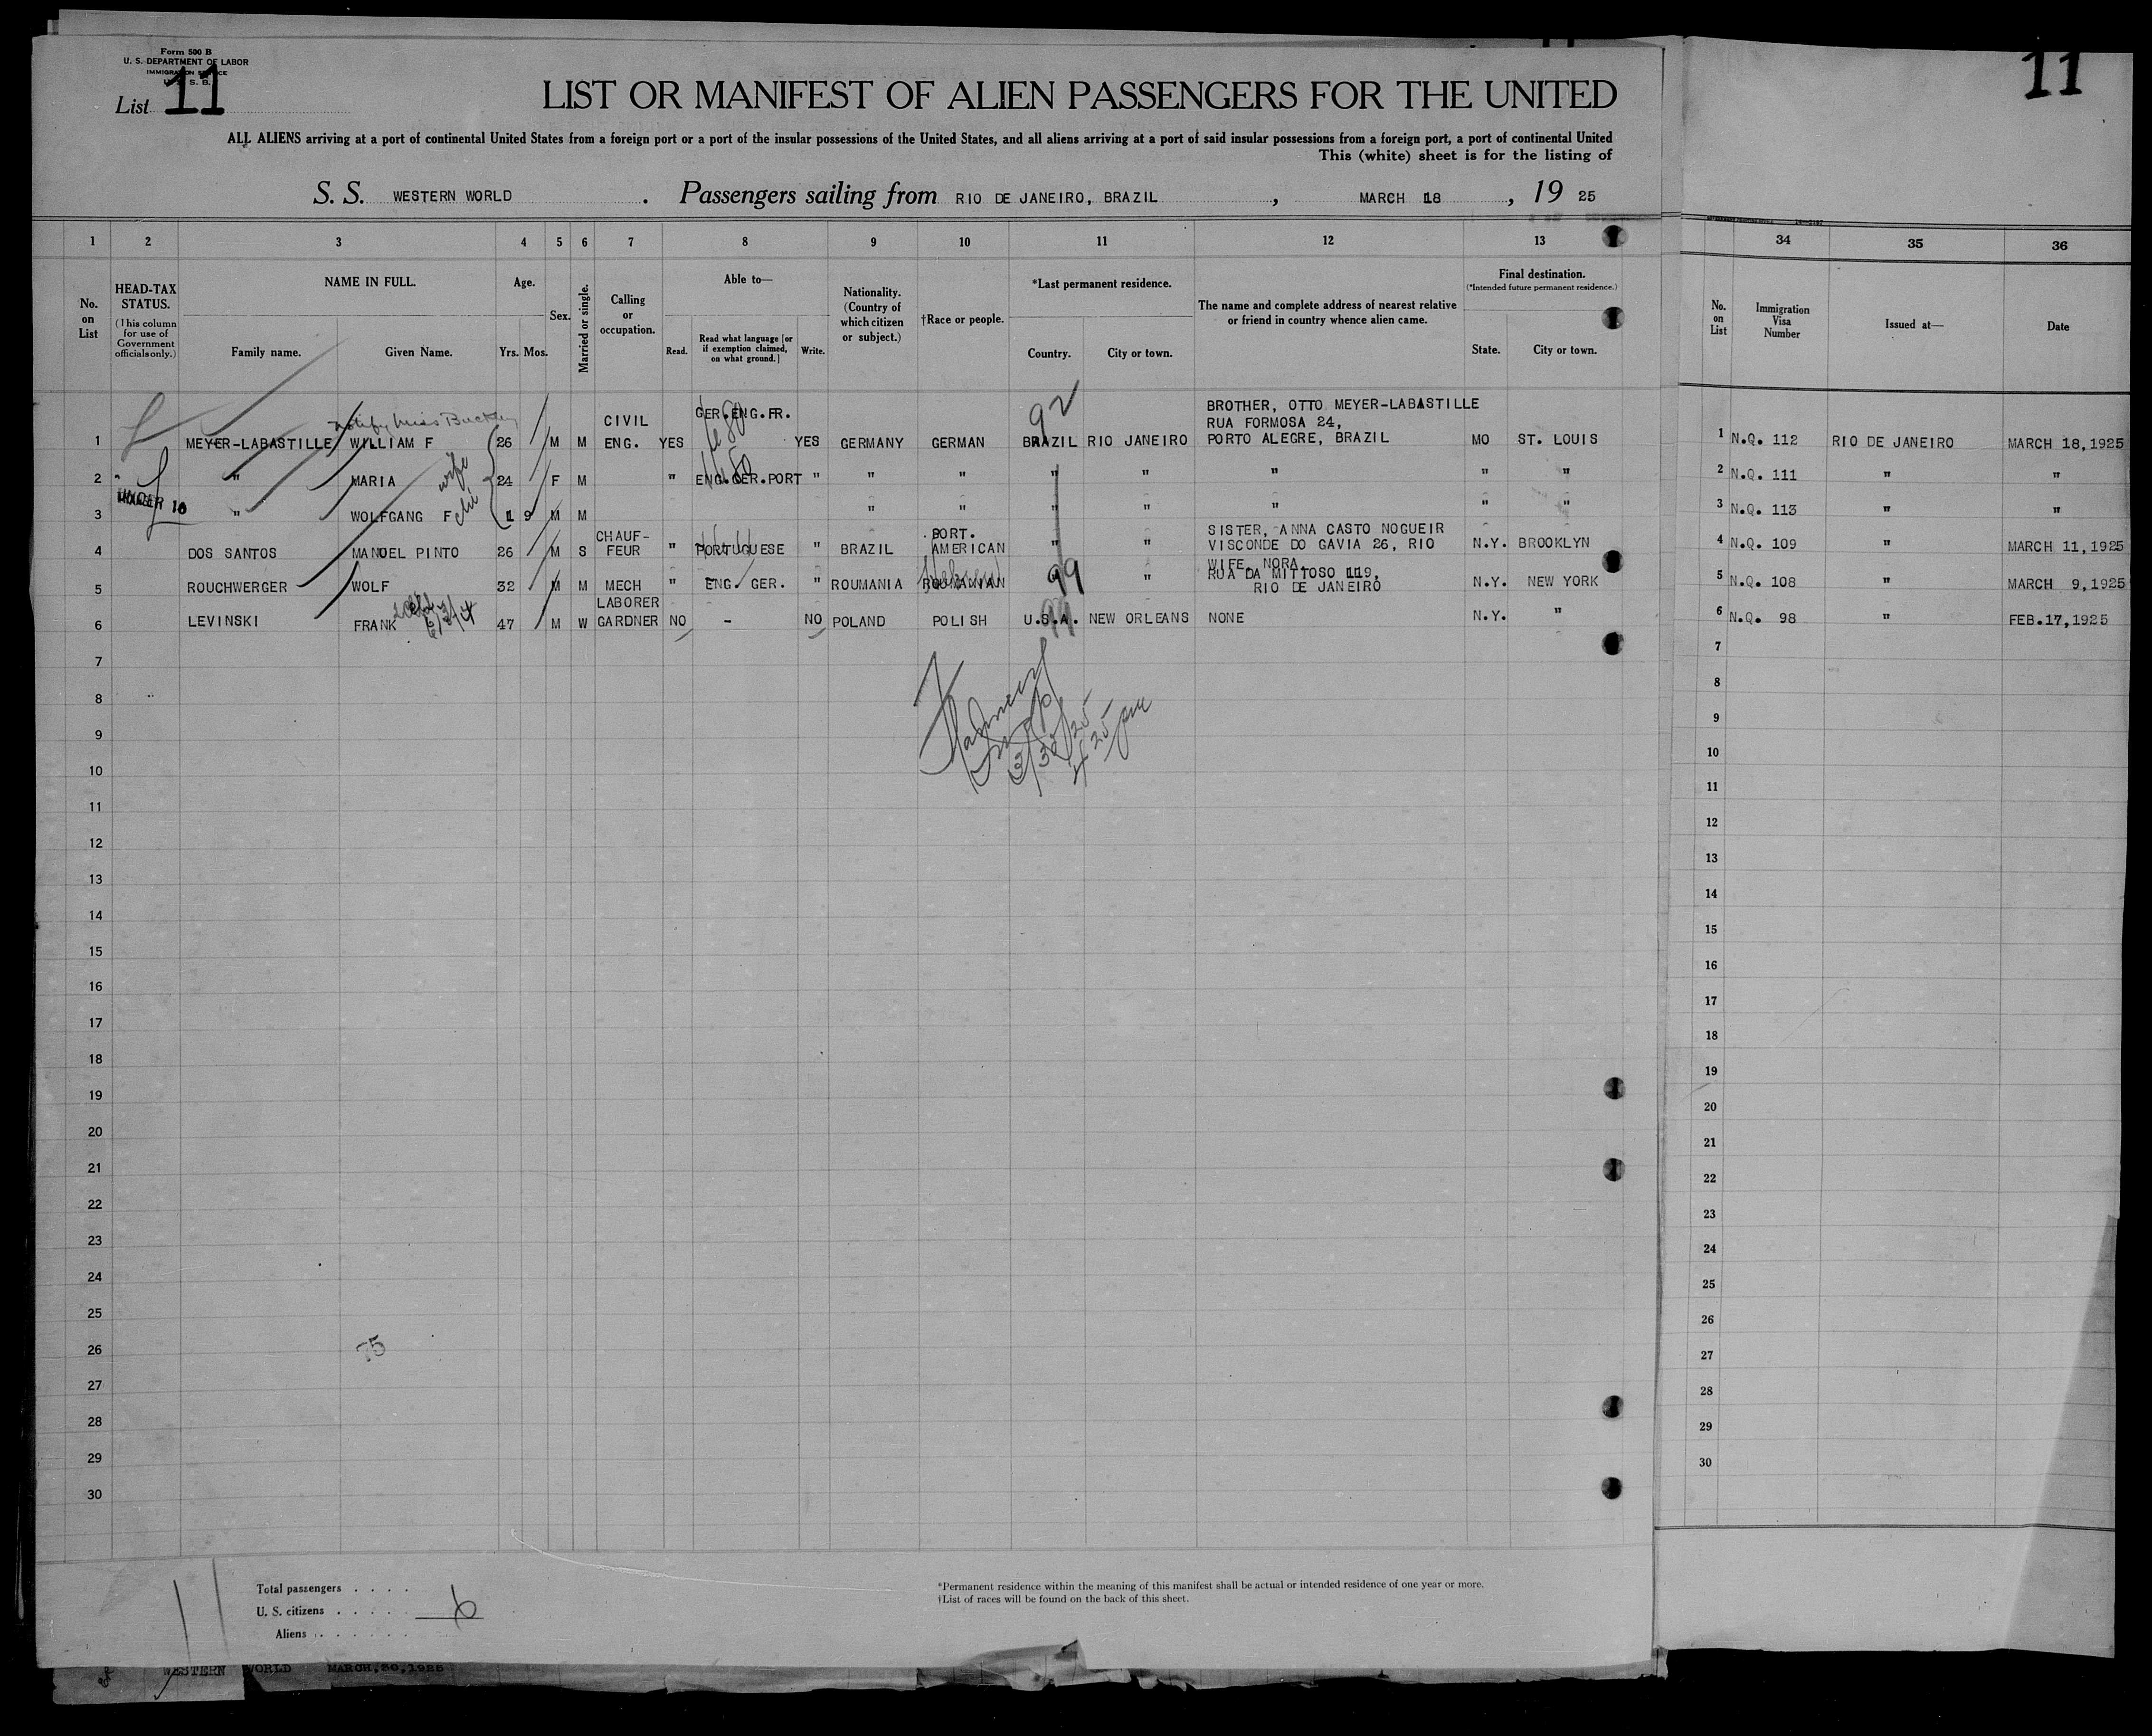 Form 500 B
U. S. DEPARTMENT OF LABOR
IMMIGRATION SERVICE
List 11
11
LIST OR MANIFEST OF ALIEN PASSENGERS FOR THE UNITED
ALL ALIENS arriving at a port of continental United States from a foreign port or a port of the insular possessions of the United States, and all aliens arriving at a port of said insular possessions from a foreign port, a port of continental United
This (white) sheet is for the listing of
S. S. WESTERN WORLD . Passengers sailing from RIO DE JANEIRO, BRAZIL , MARCH 18 , 19 25
1 2 3 4 5 6 7 8 9 10 11 12 13 34 35 36
No. on List
HEAD-TAX STATUS.
(This column for use of Government officials only.)
NAME IN FULL.
Family name. Given Name.
Age.
Yrs. Mos.
Sex.
Married or single.
Calling or occupation.
Able to—
Read. Read what language [or if exemption claimed, on what ground.] Write.
Nationality. (Country of which citizen or subject.)
†Race or people.
*Last permanent residence.
Country. City or town.
The name and complete address of nearest relative or friend in country whence alien came.
Final destination.
(*Intended future permanent residence.)
State. City or town.
No. on List
Immigration Visa Number
Issued at—
Date
notify Miss Buckley
92
1 MEYER-LABASTILLE WILLIAM F 26 M M CIVIL ENG. YES GER.ENG.FR. YES GERMANY GERMAN BRAZIL RIO JANEIRO BROTHER, OTTO MEYER-LABASTILLE RUA FORMOSA 24, PORTO ALEGRE, BRAZIL MO ST. LOUIS 1 N.Q. 112 RIO DE JANEIRO MARCH 18,1925
2 " MARIA wife 24 F M " ENG.GER.PORT " " " " " " " " 2 N.Q. 111 " "
UNDER 16
3 " WOLFGANG F 1 9 M M " " " " " " " 3 N.Q. 113 " "
4 DOS SANTOS MANOEL PINTO 26 M S CHAUF-FEUR " PORTUGUESE " BRAZIL PORT. AMERICAN " " SISTER, ANNA CASTO NOGUEIR VISCONDE DO GAVIA 26, RIO N.Y. BROOKLYN 4 N.Q. 109 " MARCH 11,1925
5 ROUCHWERGER WOLF 32 M M MECH " ENG. GER. " ROUMANIA ROUMANIAN Hebrew 99 " WIFE, NORA, RUA DA MITTOSO 119, RIO DE JANEIRO N.Y. NEW YORK 5 N.Q. 108 " MARCH 9,1925
6 LEVINSKI FRANK 47 M W LABORER GARDNER NO - NO POLAND POLISH U.S.A. 99 NEW ORLEANS NONE N.Y. " 6 N.Q. 98 " FEB.17,1925
7 7
8 8
9 9
3/30/25
4 25 pm
10 10
11 11
12 12
13 13
14 14
15 15
16 16
17 17
18 18
19 19
20 20
21 21
22 22
23 23
24 24
25 25
26 75 26
27 27
28 28
29 29
30 30
11
Total passengers . . . .
U. S. citizens . . . . . 6
Aliens . . . . . .
*Permanent residence within the meaning of this manifest shall be actual or intended residence of one year or more.
†List of races will be found on the back of this sheet.
WESTERN WORLD MARCH,30,1925